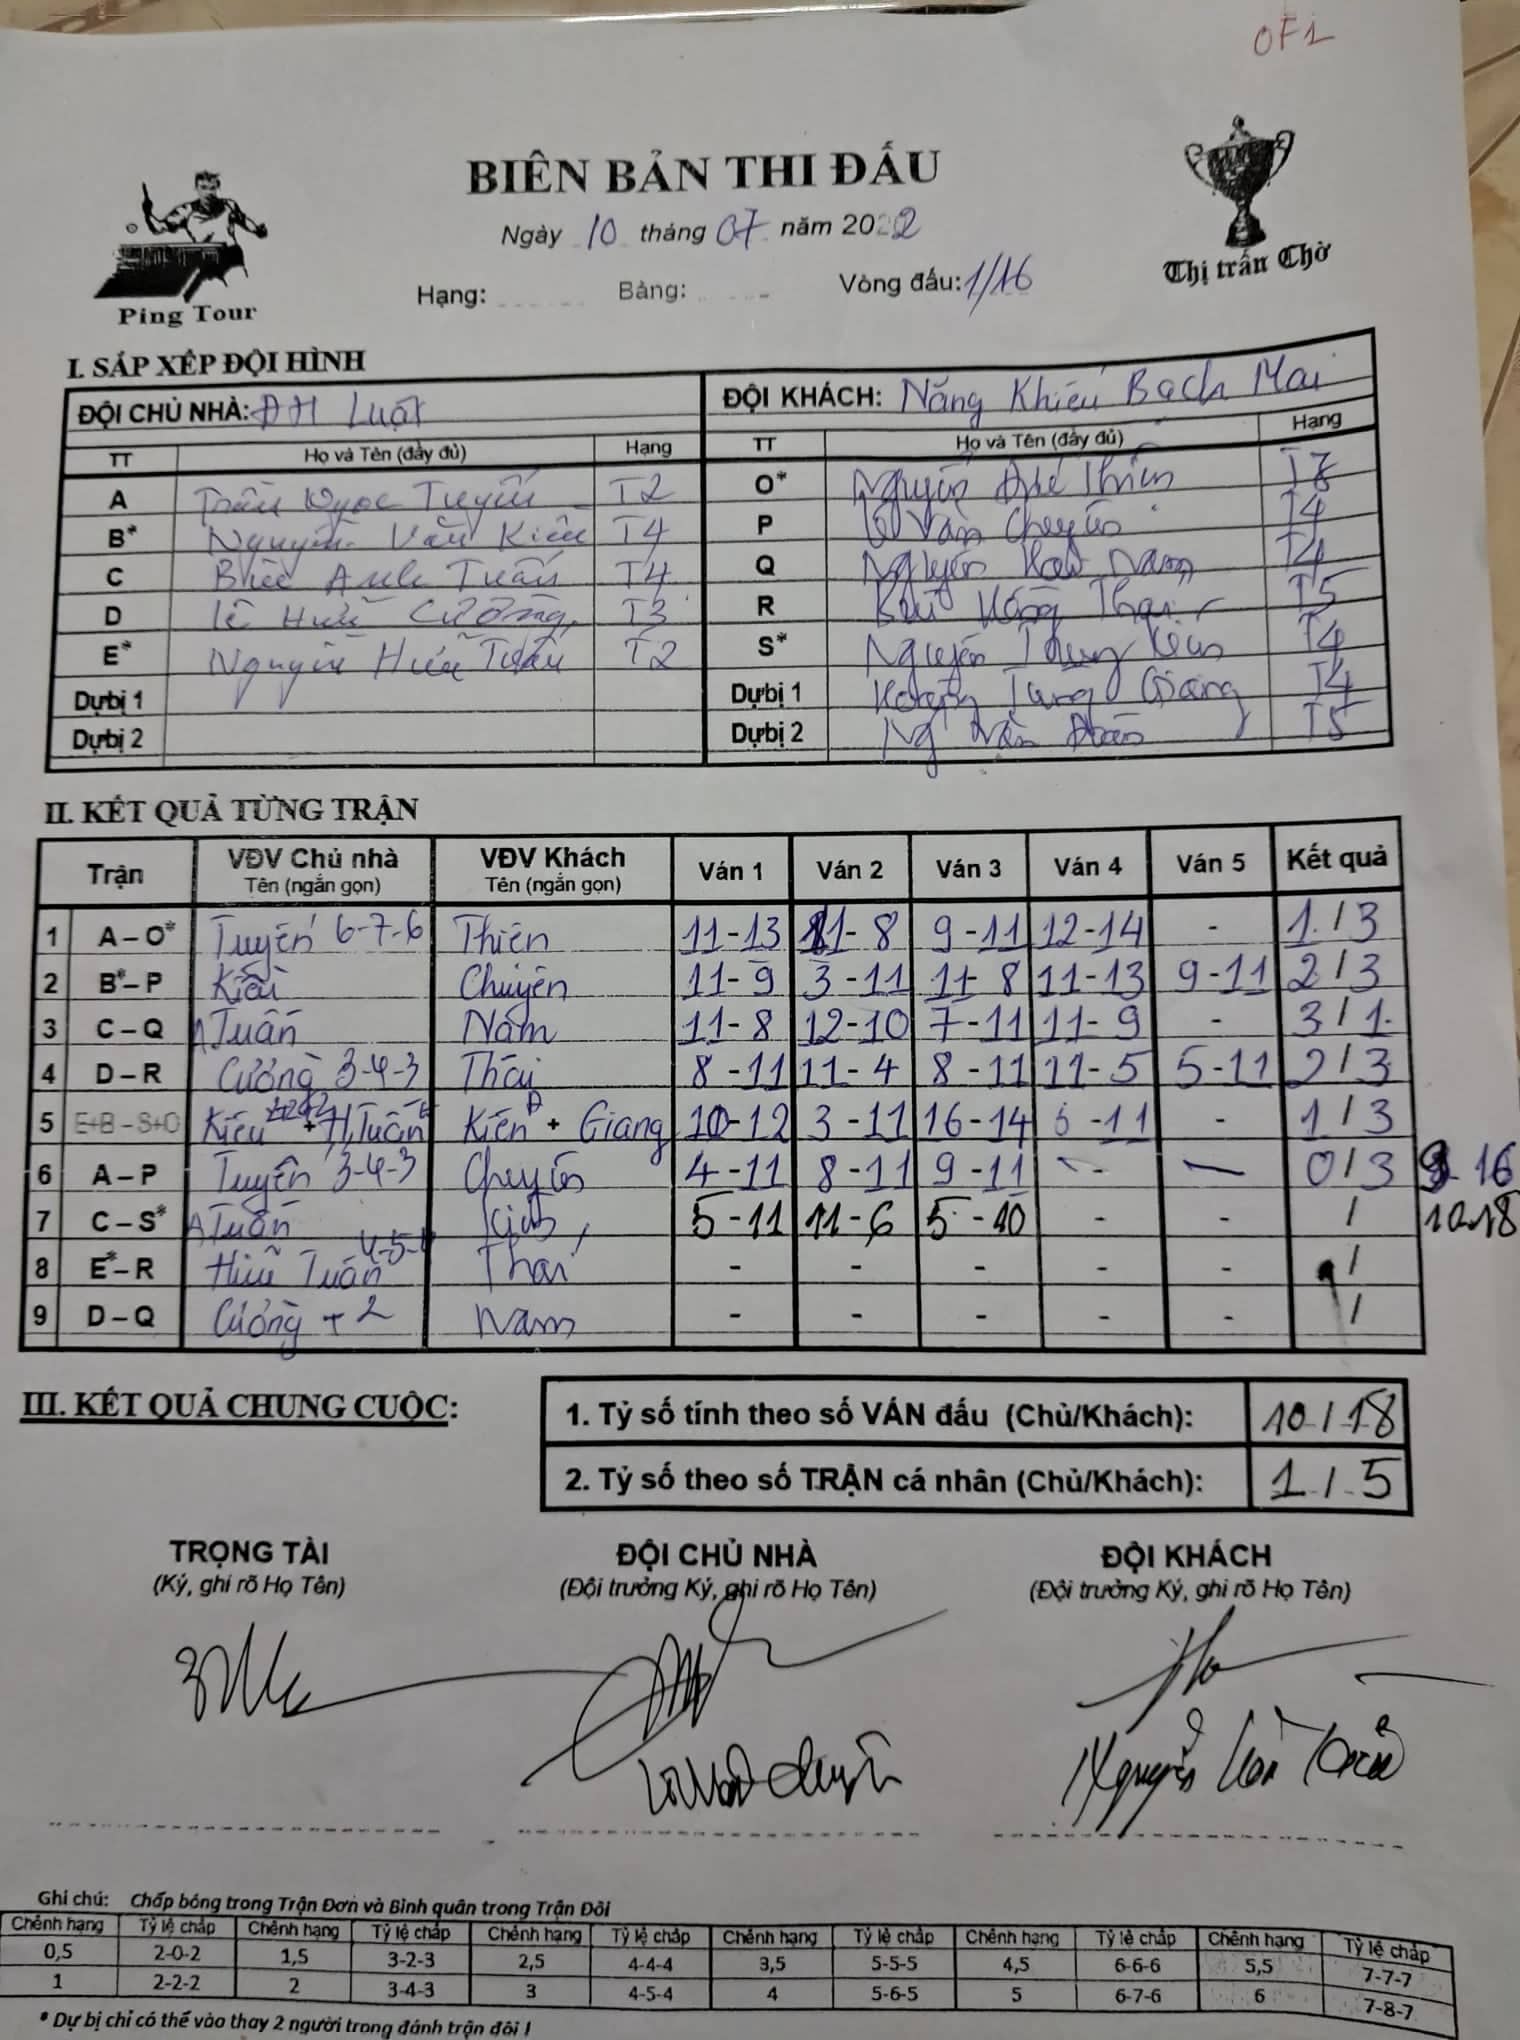 OF1
BIÊN BẢN THI ĐẤU
Ngày 10 tháng 07 năm 2022
Hạng: Bảng: Vòng đấu: 1/16
Ping Tour
Thị trấn Chờ
I. SẮP XẾP ĐỘI HÌNH
ĐỘI CHỦ NHÀ: ĐH Luật ĐỘI KHÁCH: Năng Khiếu Bạch Mai
TT Họ và Tên (đầy đủ) Hạng TT Họ và Tên (đầy đủ) Hạng
A Trần Ngọc Tuyến T2 O* Nguyễn Thiên
B* Nguyễn Văn Kiều T4 P Lê Văn Chuyên T4
C Bùi Anh Tuấn T4 Q Nguyễn Nam T4
D Lê Hữu Cường T3 R Bùi Hồng Thái T5
E* Nguyễn Hữu Tuấn T2 S* Nguyễn T4
Dự bị 1 Dự bị 1 Hoàng Tùng Giang T4
Dự bị 2 Dự bị 2 Ng Văn T5
II. KẾT QUẢ TỪNG TRẬN
Trận VĐV Chủ nhà Tên (ngắn gọn) VĐV Khách Tên (ngắn gọn) Ván 1 Ván 2 Ván 3 Ván 4 Ván 5 Kết quả
1 A – O* Tuyến 6-7-6 Thiên 11-13 11-8 9-11 12-14 - 1/3
2 B*– P Kiều Chuyên 11-9 3-11 11-8 11-13 9-11 2/3
3 C – Q A Tuấn Nam 11-8 12-10 7-11 11-9 - 3/1
4 D – R Cường 3-4-3 Thái 8-11 11-4 8-11 11-5 5-11 2/3
5 E+B – S+O Kiều + H.Tuấn Kiên + Giang 10-12 3-11 16-14 -11 - 1/3
6 A – P Tuyến 3-4-3 Chuyên 4-11 8-11 9-11 - - 0/3 9-16
7 C – S* A Tuấn 5-11 11-6 5-10 - - / 10-18
8 E*– R Hữu Tuấn Thái - - - - - /
9 D – Q Cường + 2 Nam - - - - - /
III. KẾT QUẢ CHUNG CUỘC:
1. Tỷ số tính theo số VÁN đấu (Chủ/Khách): 10/18
2. Tỷ số theo số TRẬN cá nhân (Chủ/Khách): 1/5
TRỌNG TÀI ĐỘI CHỦ NHÀ ĐỘI KHÁCH
(Ký, ghi rõ Họ Tên) (Đội trưởng Ký, ghi rõ Họ Tên) (Đội trưởng Ký, ghi rõ Họ Tên)
Nguyễn Văn
Ghi chú: Chấp bóng trong Trận Đơn và Bình quân trong Trận Đôi
Chênh hạng Tỷ lệ chấp Chênh hạng Tỷ lệ chấp Chênh hạng Tỷ lệ chấp Chênh hạng Tỷ lệ chấp Chênh hạng Tỷ lệ chấp Chênh hạng Tỷ lệ chấp
0,5 2-0-2 1,5 3-2-3 2,5 4-4-4 3,5 5-5-5 4,5 6-6-6 5,5 7-7-7
1 2-2-2 2 3-4-3 3 4-5-4 4 5-6-5 5 6-7-6 6 7-8-7
* Dự bị chỉ có thể vào thay 2 người trong đánh trận đôi !